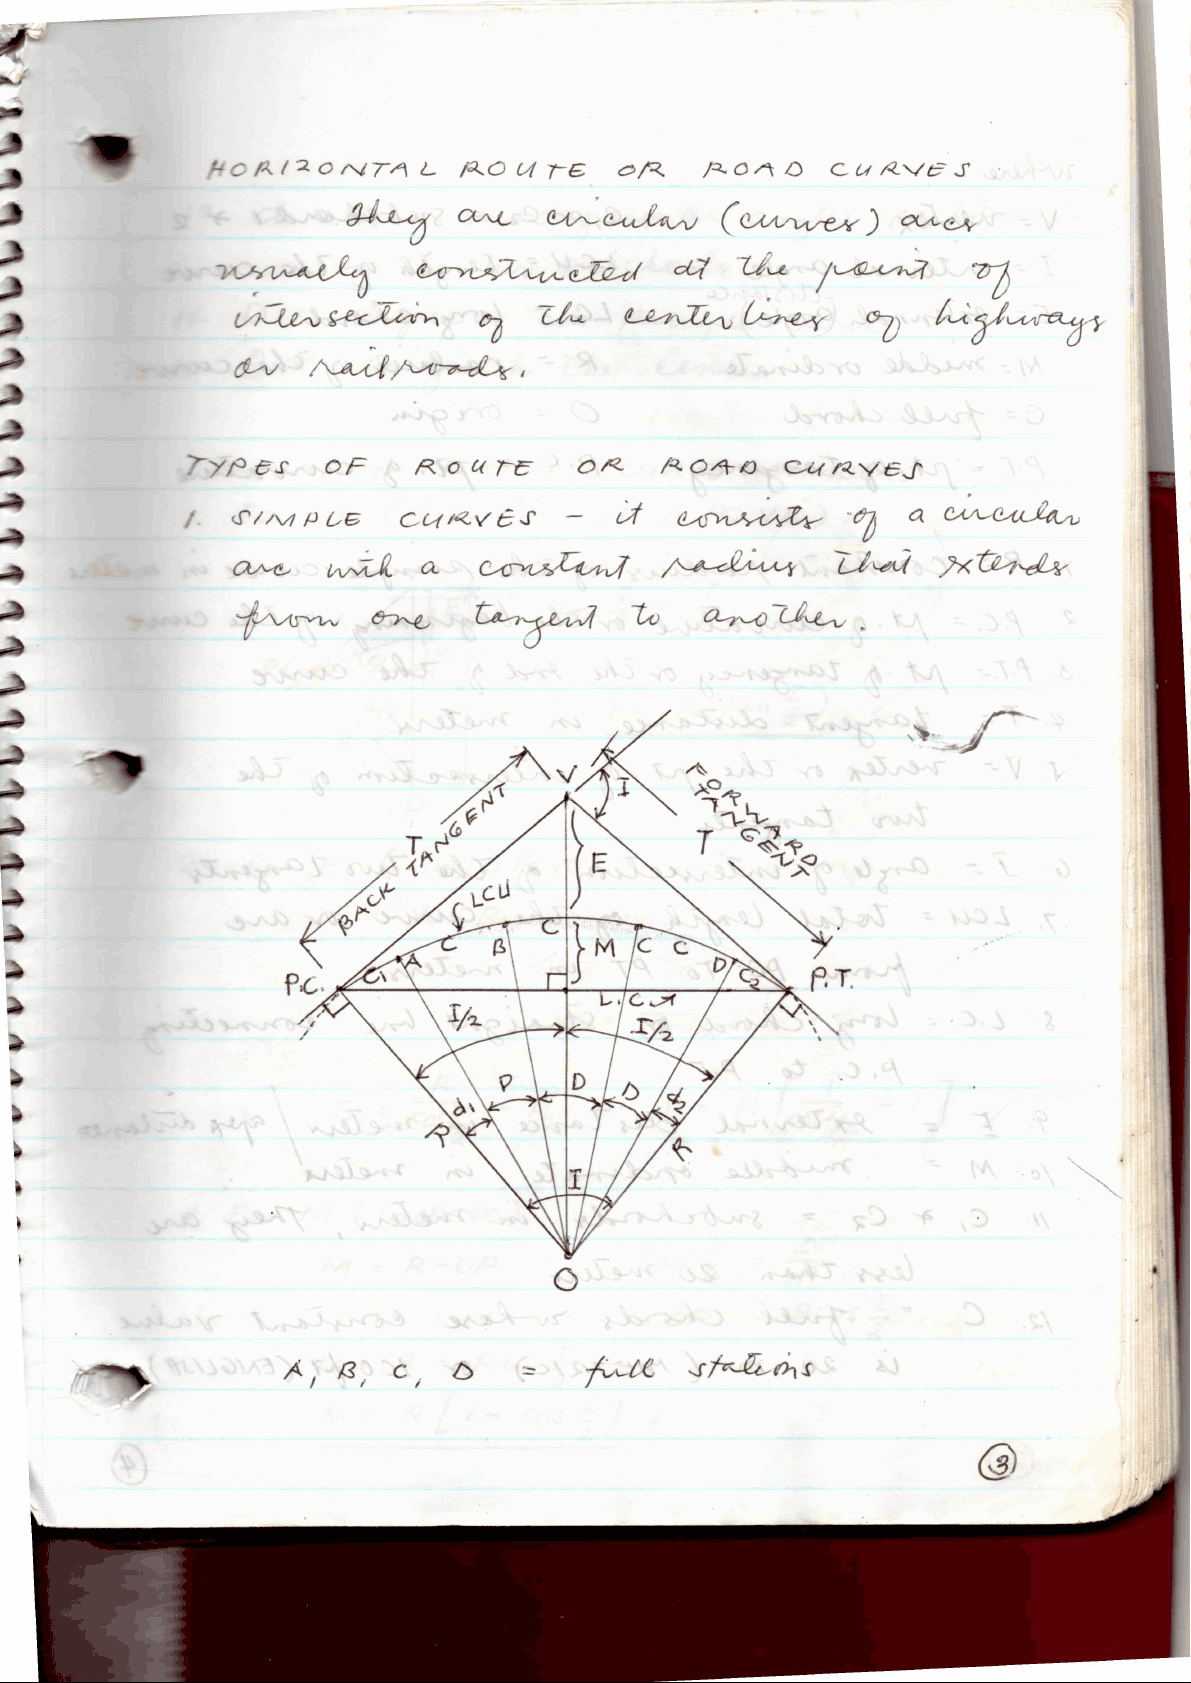 HORIZONTAL ROUTE OR ROAD CURVES
They are circular (curves) arcs
usually constructed at the point of
intersection of the center lines of highways
or railroads.
TYPES OF ROUTE OR ROAD CURVES
1. SIMPLE CURVES - it consists of a circular
arc with a constant radius that extends
from one tangent to another.
V
I
BACK TANGENT
T
FORWARD TANGENT
T
E
LCU
C
B
C
M
C
C
A
C1
D
C2
P.C.
P.T.
L.C.
I/2
I/2
D
D
D
d1
d2
R
R
I
O
A, B, C, D = full stations
3